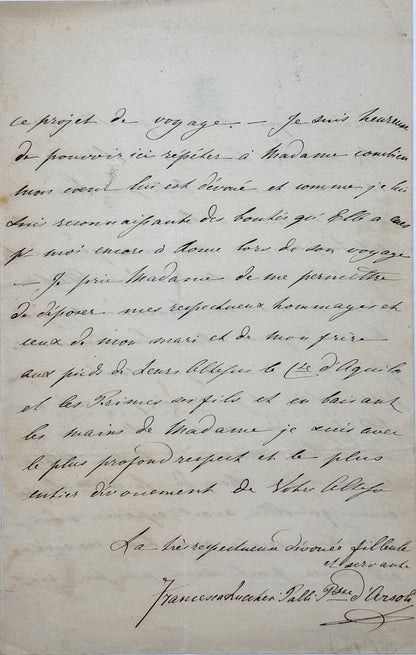 ce projet de voyage. — Je suis heureuse
de pouvoir ici répéter à Madame combien
mon coeur lui est dévoué et comme je lui
suis reconnaissante des bontés qu'Elle a eues
pr moi encore à Rome lors de son voyage
— Je prie Madame de me permettre
de déposer mes respectueux hommages et
ceux de mon mari et de mon frère
aux pieds de Leurs Altesses le Cte d'Aquila
et les Princes ses fils et en baisant
les mains de Madame je suis avec
le plus profond respect et le plus
entier dévouement de Votre Altesse
La très respectueuse dévouée filleule
et servante
Francesca Lucchesi Palli Psse d'Arsoli